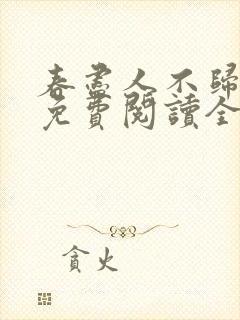 春盡人不歸
免費閱讀全
貪火